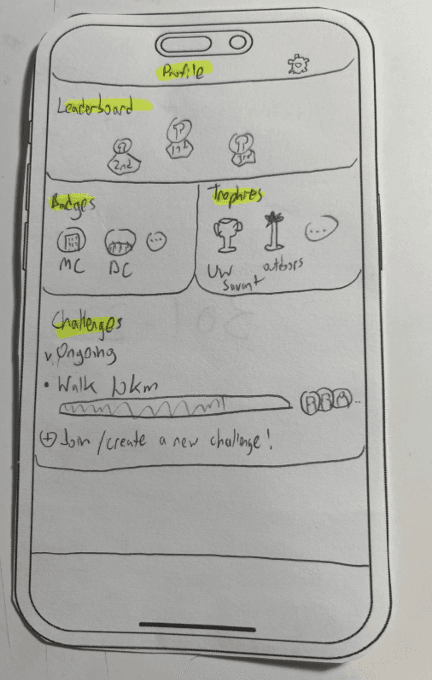 Profile
Leaderboard
1st
2nd
3rd
Badges
MC
DC
Trophies
UW
savant
outdoors
Challenges
Ongoing
• Walk 10km
+ Join/create a new challenge!